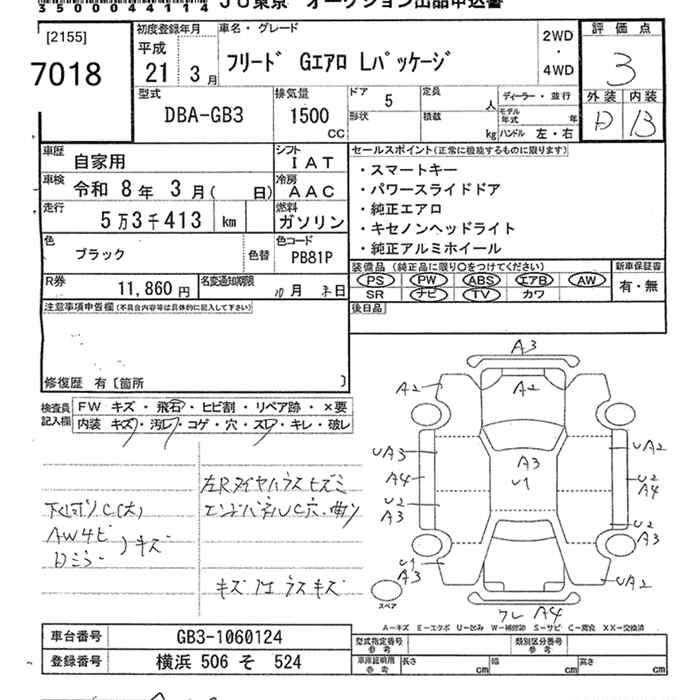 3500044114 JU東京 オークション出品申込書
[2155]
7018
初度登録年月
平成
21年 3月
車名・グレード
フリード Gエアロ Lパッケージ
2WD
・
4WD
評価点
3
外装 内装
D B
型式
DBA-GB3
排気量
1500
CC
ドア 5
形状
定員 人
積載 kg
ディーラー・並行
モデル年式 年
ハンドル 左・右
車歴
自家用
シフト
IAT
車検
令和 8年 3月( 日)
冷房
AAC
走行
5万3千413 km
燃料
ガソリン
色
ブラック
色替
色コード
PB81P
R券
11,860円
名変通知期限
10月 末日
セールスポイント(正常に機能するものに限ります)
・スマートキー
・パワースライドドア
・純正エアロ
・キセノンヘッドライト
・純正アルミホイール
装備品(純正品に限り○をつけてください)
PS PW ABS エアB AW
SR ナビ TV カワ
新車保証書
有・無
後日品
注意事項申告欄(不具合内容等は具体的に記入して下さい)
修復歴 有〔箇所 〕
検査員記入欄
FW キズ・飛石・ヒビ割・リペア跡・×要
内装 キズ・汚レ・コゲ・穴・スレ・キレ・破レ
下廻りサビC(大)
AW4ヒ
Dミラー
)キズ
エンドパネルUC穴・曲り
A3
A2 A2
UA3 UA2
A3
U1
A4 U2
A4
U2
A3
U2
A3
U1
A3
UA2
A4
スペア
A-キズ E-エクボ U-凹み W-補修跡 S-サビ C-腐食 XX-交換済
車台番号 GB3-1060124
登録番号 横浜 506 そ 524
型式指定番号 参考
類別区分番号 参考
車庫証明用 参考
長さ cm 幅 cm 高さ cm